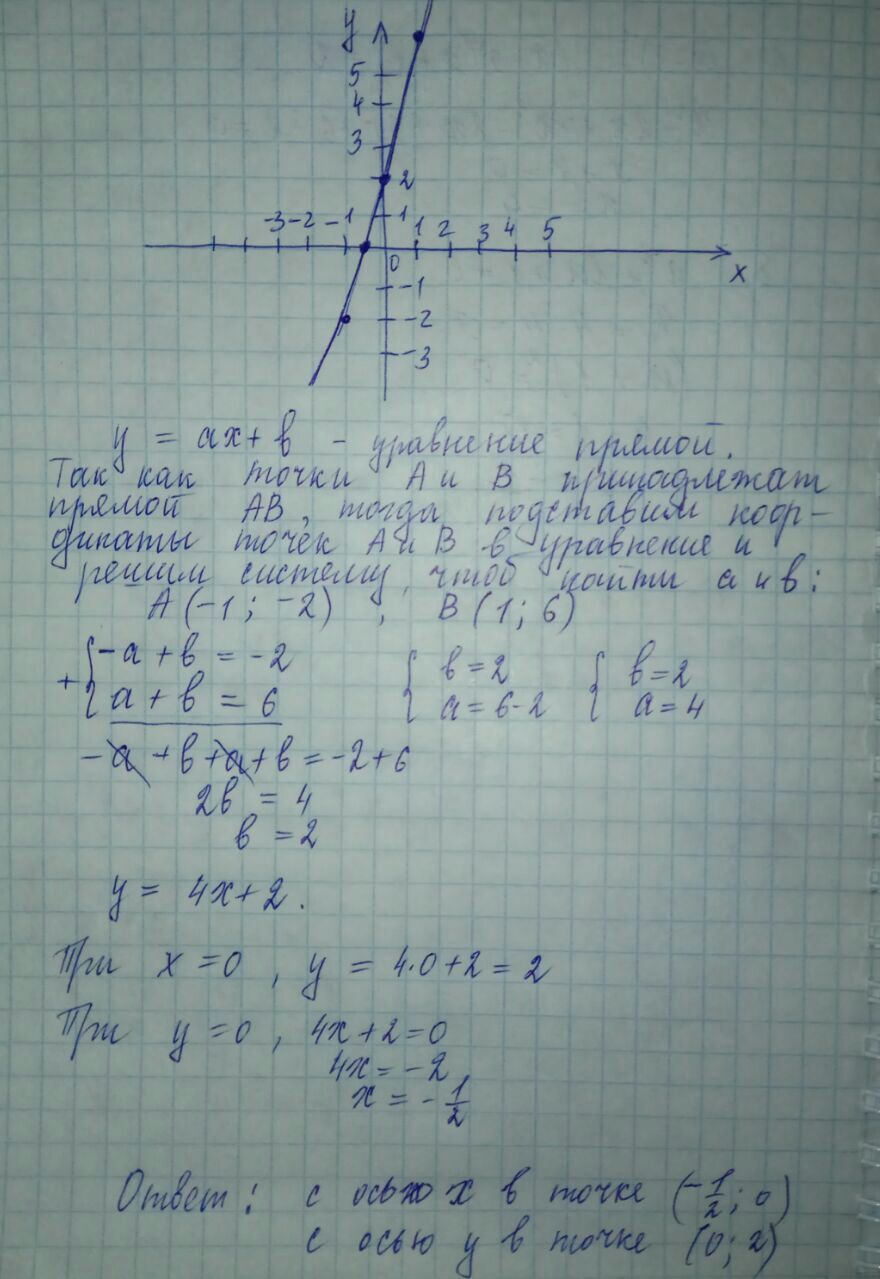 y
5
4
3
2
-3 -2 -1 1 1 2 3 4 5
0 x
-1
-2
-3
y = ax + b - уравнение прямой.
Так как точки A и B принадлежат
прямой AB, тогда подставим коор-
динаты точек A и B в уравнение и
решим систему, чтоб найти a и b:
A(-1; -2) , B(1; 6)
+ { -a + b = -2 { b = 2 { b = 2
a + b = 6 a = 6-2 a = 4
-a + b + a + b = -2 + 6
2b = 4
b = 2
y = 4x + 2.
При x = 0 , y = 4·0 + 2 = 2
При y = 0 , 4x + 2 = 0
4x = -2
x = -1/2
Ответ: с осью x в точке (-1/2; 0)
с осью y в точке (0; 2)